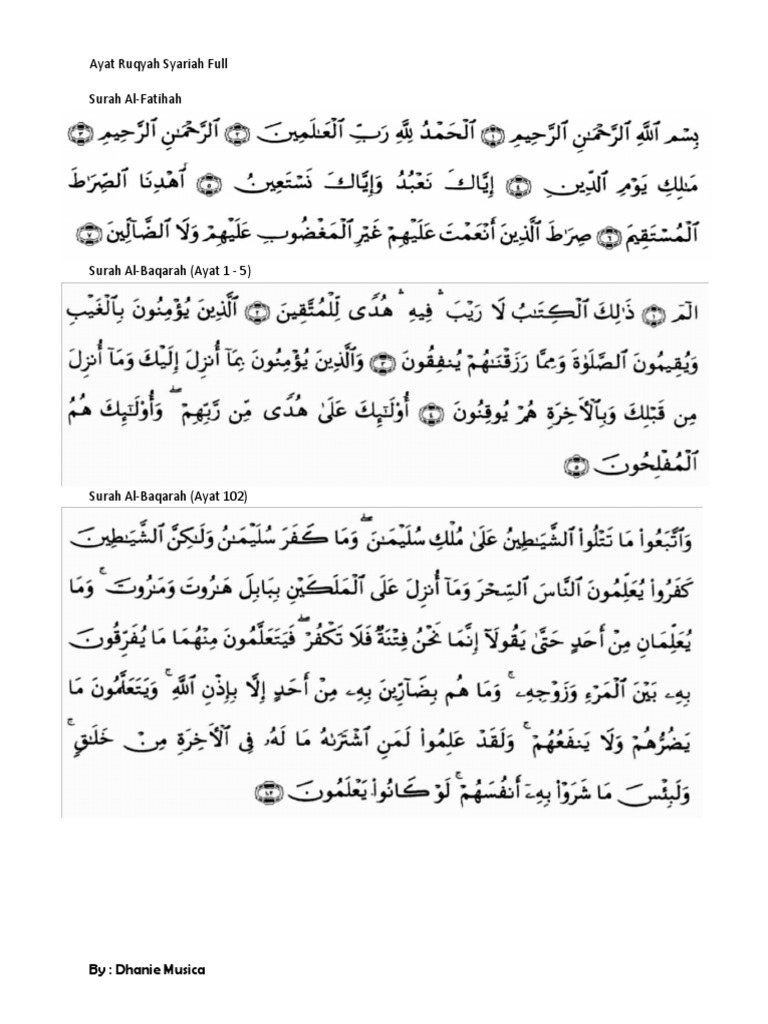 Ayat Ruqyah Syariah Full
Surah Al-Fatihah
بِسْمِ اللَّهِ الرَّحْمَٰنِ الرَّحِيمِ ۝١ الْحَمْدُ لِلَّهِ رَبِّ الْعَالَمِينَ ۝٢ الرَّحْمَٰنِ الرَّحِيمِ ۝٣
مَالِكِ يَوْمِ الدِّينِ ۝٤ إِيَّاكَ نَعْبُدُ وَإِيَّاكَ نَسْتَعِينُ ۝٥ اهْدِنَا الصِّرَاطَ
الْمُسْتَقِيمَ ۝٦ صِرَاطَ الَّذِينَ أَنْعَمْتَ عَلَيْهِمْ غَيْرِ الْمَغْضُوبِ عَلَيْهِمْ وَلَا الضَّالِّينَ ۝٧
Surah Al-Baqarah (Ayat 1 - 5)
الم ۝١ ذَٰلِكَ الْكِتَابُ لَا رَيْبَ ۛ فِيهِ ۛ هُدًى لِلْمُتَّقِينَ ۝٢ الَّذِينَ يُؤْمِنُونَ بِالْغَيْبِ
وَيُقِيمُونَ الصَّلَوٰةَ وَمِمَّا رَزَقْنَاهُمْ يُنْفِقُونَ ۝٣ وَالَّذِينَ يُؤْمِنُونَ بِمَا أُنْزِلَ إِلَيْكَ وَمَا أُنْزِلَ
مِنْ قَبْلِكَ وَبِالْآخِرَةِ هُمْ يُوقِنُونَ ۝٤ أُولَٰئِكَ عَلَىٰ هُدًى مِنْ رَبِّهِمْ ۖ وَأُولَٰئِكَ هُمُ
الْمُفْلِحُونَ ۝٥
Surah Al-Baqarah (Ayat 102)
وَاتَّبَعُوا مَا تَتْلُوا الشَّيَاطِينُ عَلَىٰ مُلْكِ سُلَيْمَانَ ۖ وَمَا كَفَرَ سُلَيْمَانُ وَلَٰكِنَّ الشَّيَاطِينَ
كَفَرُوا يُعَلِّمُونَ النَّاسَ السِّحْرَ وَمَا أُنْزِلَ عَلَى الْمَلَكَيْنِ بِبَابِلَ هَارُوتَ وَمَارُوتَ ۚ وَمَا
يُعَلِّمَانِ مِنْ أَحَدٍ حَتَّىٰ يَقُولَا إِنَّمَا نَحْنُ فِتْنَةٌ فَلَا تَكْفُرْ ۖ فَيَتَعَلَّمُونَ مِنْهُمَا مَا يُفَرِّقُونَ
بِهِ بَيْنَ الْمَرْءِ وَزَوْجِهِ ۚ وَمَا هُمْ بِضَارِّينَ بِهِ مِنْ أَحَدٍ إِلَّا بِإِذْنِ اللَّهِ ۚ وَيَتَعَلَّمُونَ مَا
يَضُرُّهُمْ وَلَا يَنْفَعُهُمْ ۚ وَلَقَدْ عَلِمُوا لَمَنِ اشْتَرَاهُ مَا لَهُ فِي الْآخِرَةِ مِنْ خَلَاقٍ ۚ
وَلَبِئْسَ مَا شَرَوْا بِهِ أَنْفُسَهُمْ ۚ لَوْ كَانُوا يَعْلَمُونَ ۝١٠٢
By : Dhanie Musica